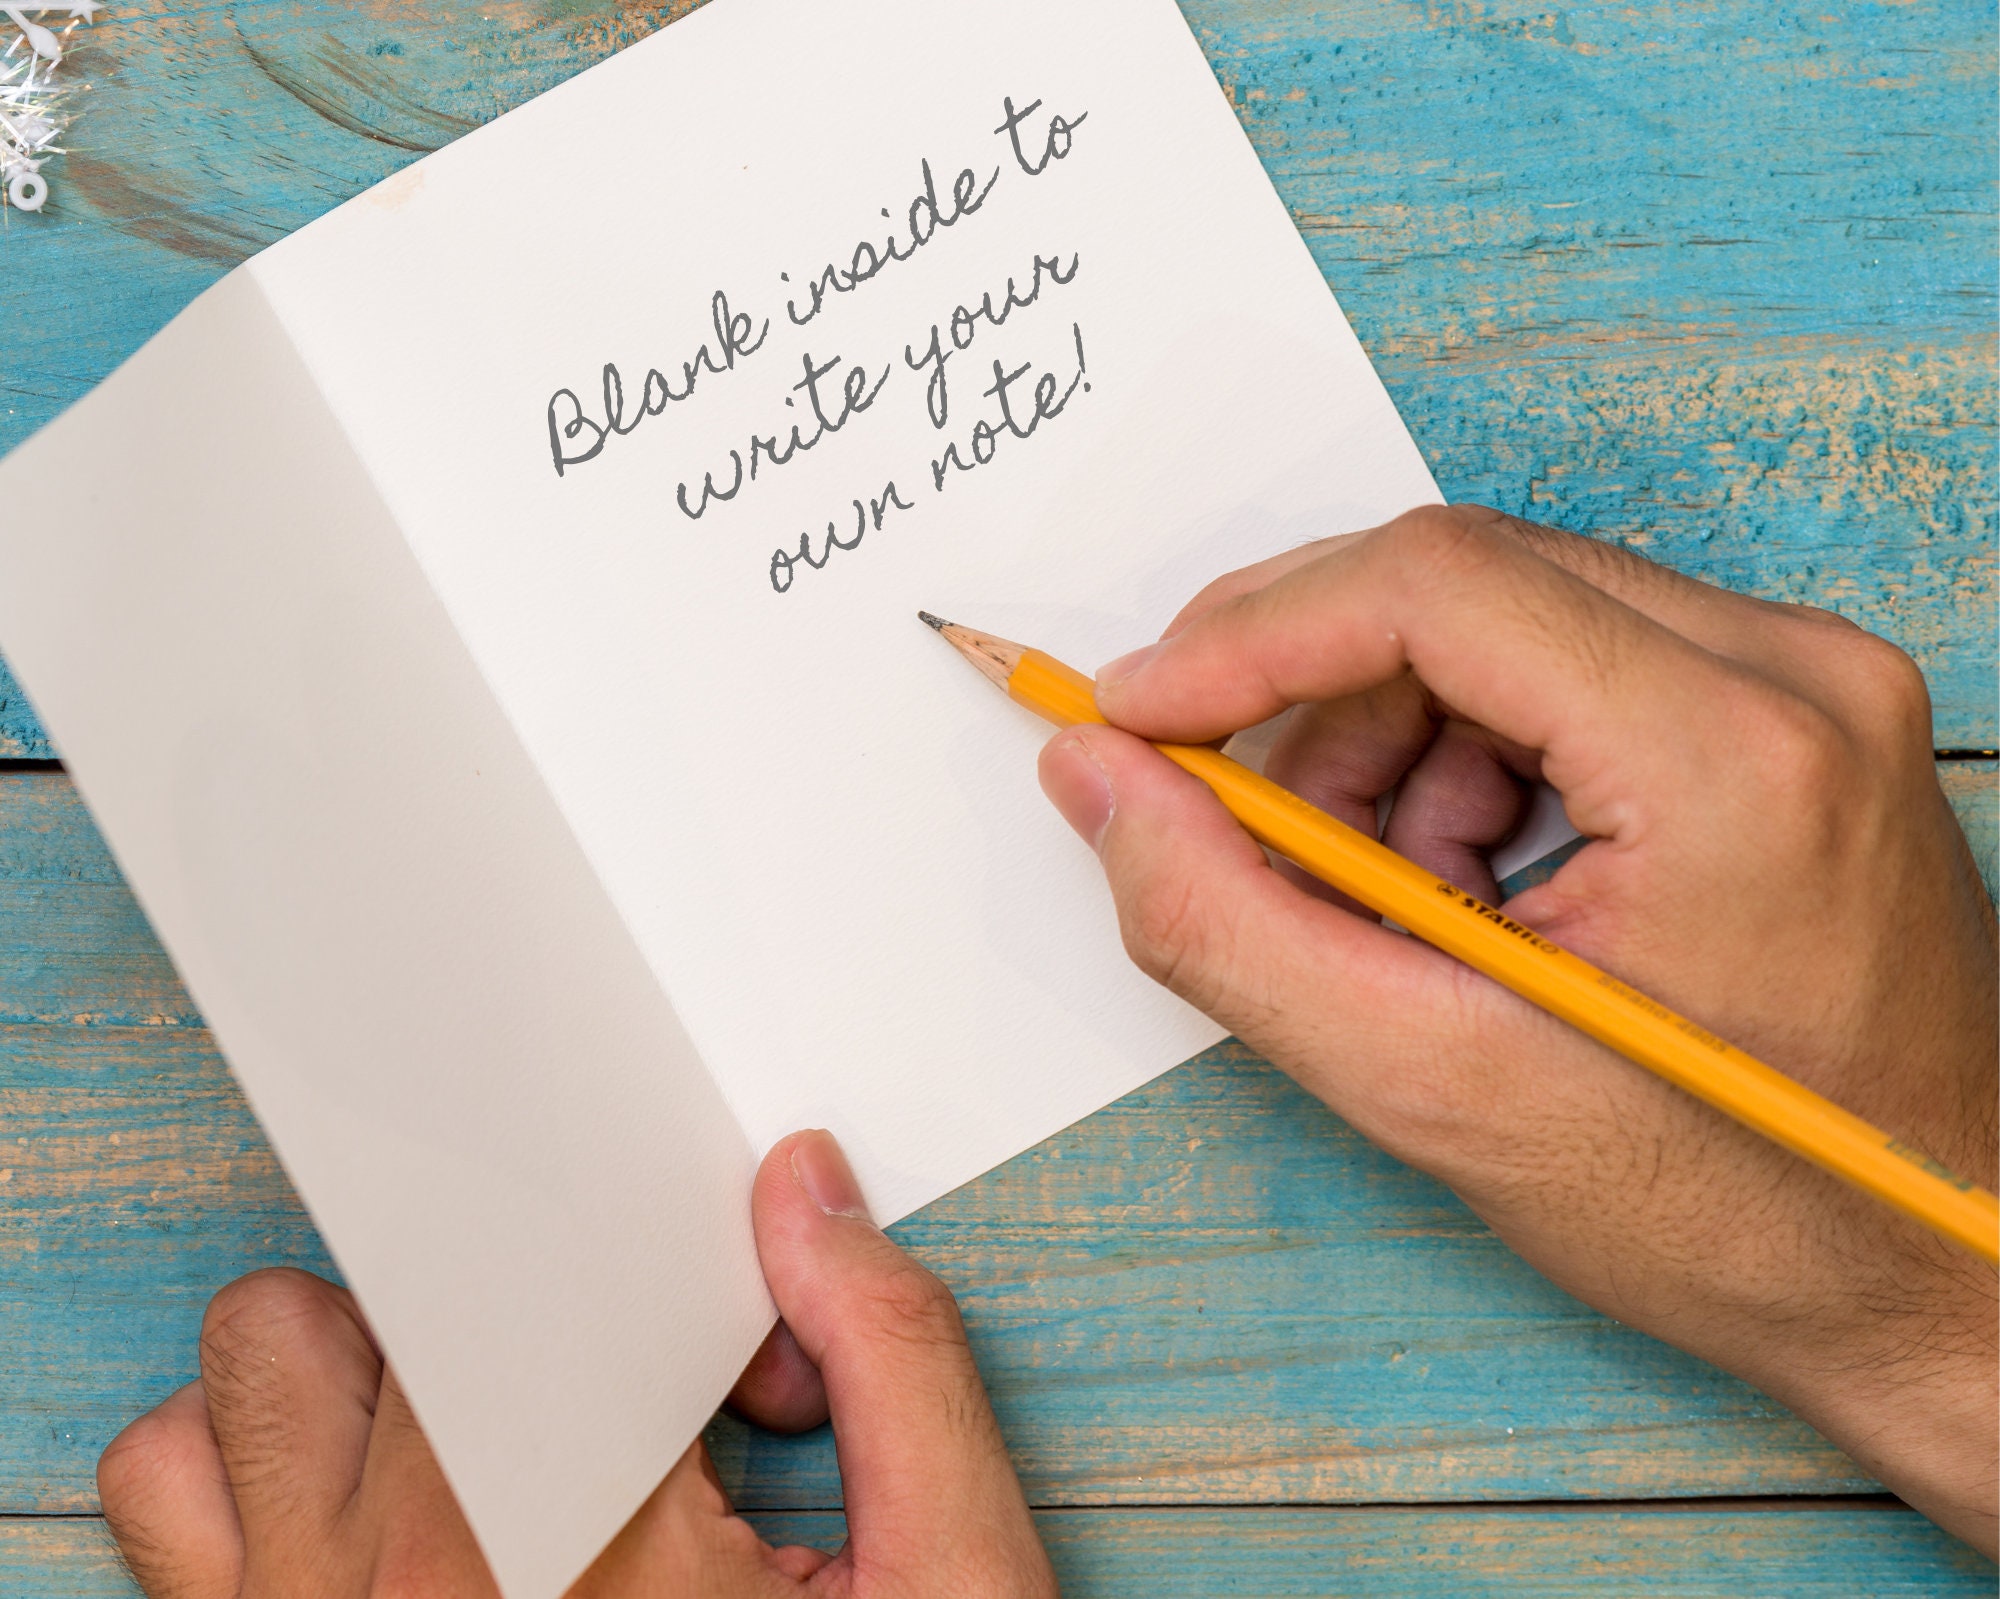 Blank inside to
write your
own note!
STABILO
Swano 4905